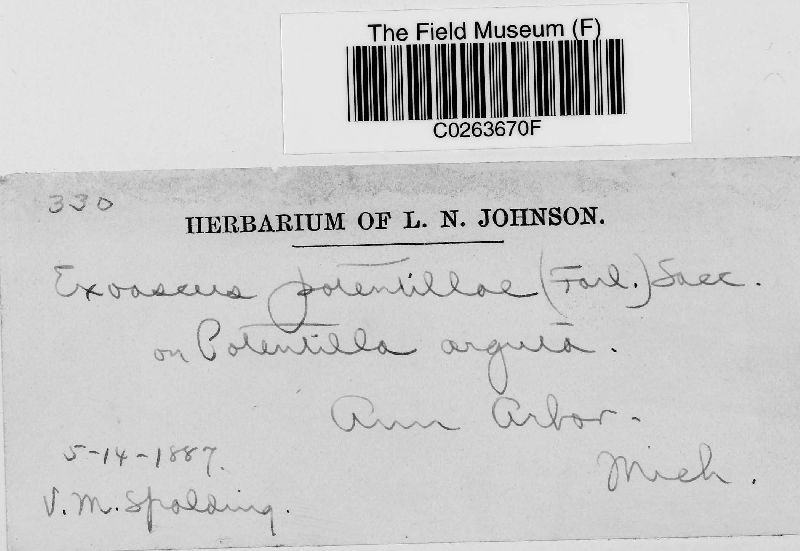 The Field Museum (F)
C0263670F
330
HERBARIUM OF L. N. JOHNSON.
Exoascus potentillae (Farl.) Sacc.
on Potentilla arguta.
Ann Arbor.
Mich.
5-14-1887.
V. M. Spalding.